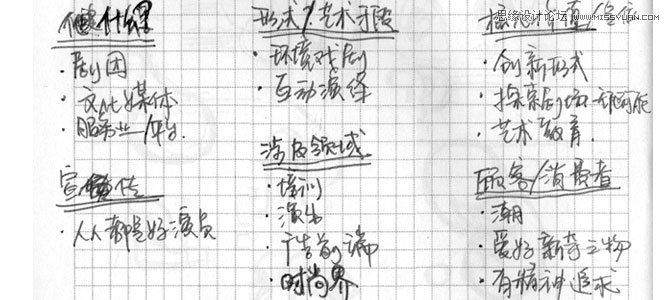 思缘设计论坛 WWW.MISSYUAN.COM
剧团
文化媒体
服务业/平台
宣传
人人都是好演员
形式/艺术手段
环境戏剧
互动演绎
涉及领域
培训
演出
广告前端
时尚界
创新形式
探索剧场
艺术教育
顾客/消费者
潮
爱好新奇之物
有精神追求